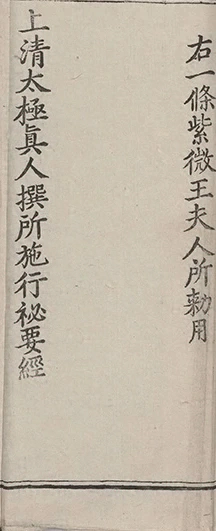 右一條紫微王夫人所勑用
上清太極眞人撰所施行祕要經